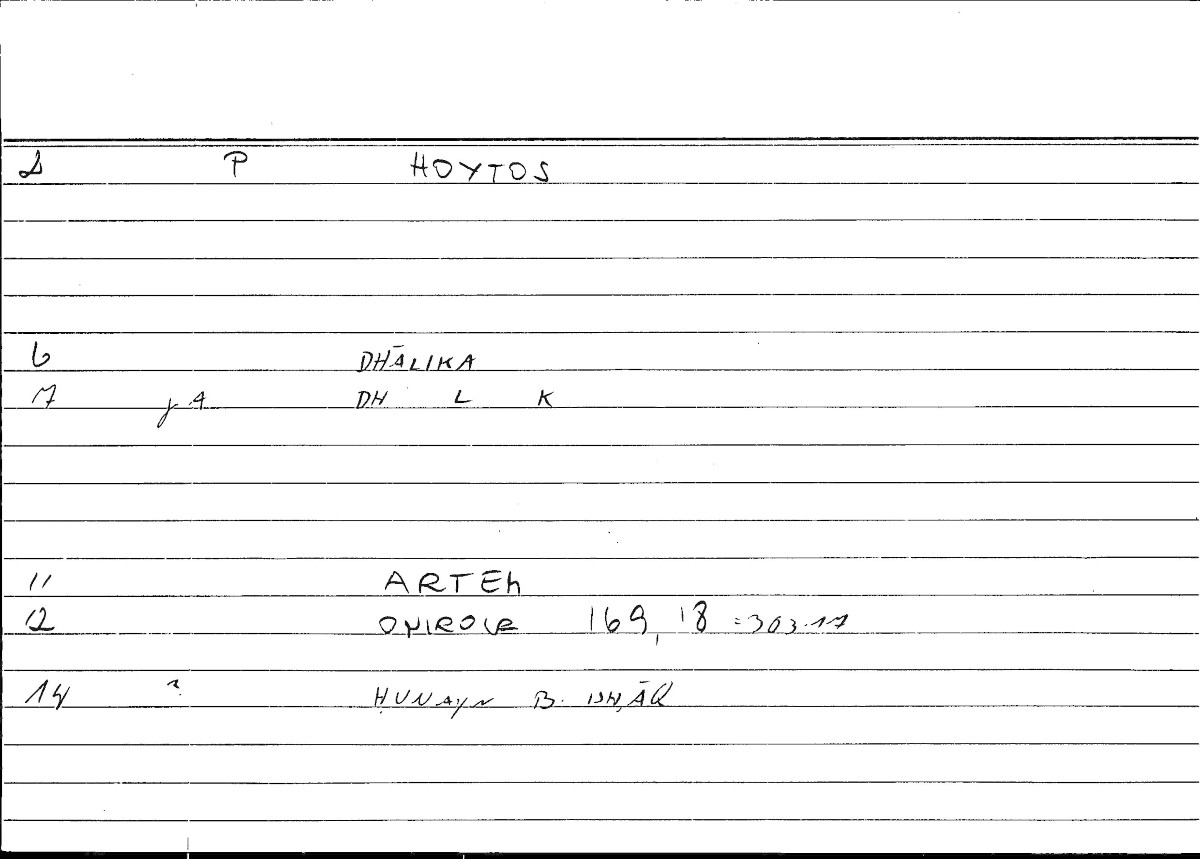 P HOYTOS
6 DHĀLIKA
7 DH L K
11 ARTEM
12 ONIROCR 169, 18 = 303.17
14 ? ḤUNAYN B. ISḤĀQ